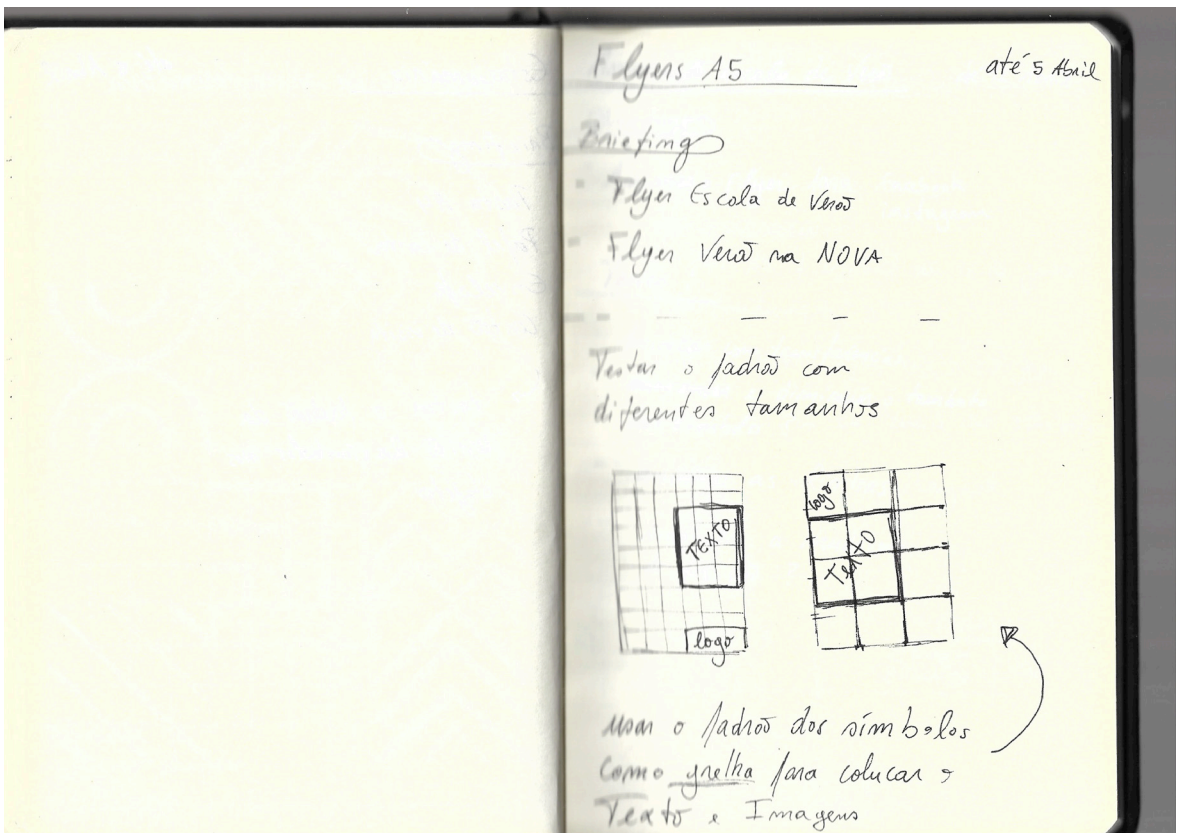 Flyers A5
até 5 Abril
Briefing
Flyer Escola de Verão
Flyer Verão na NOVA
Testar o padrão com
diferentes tamanhos
TEXTO
logo
logo
Texto
usar o padrão dos símbolos
como grelha para colocar o
Texto e Imagens